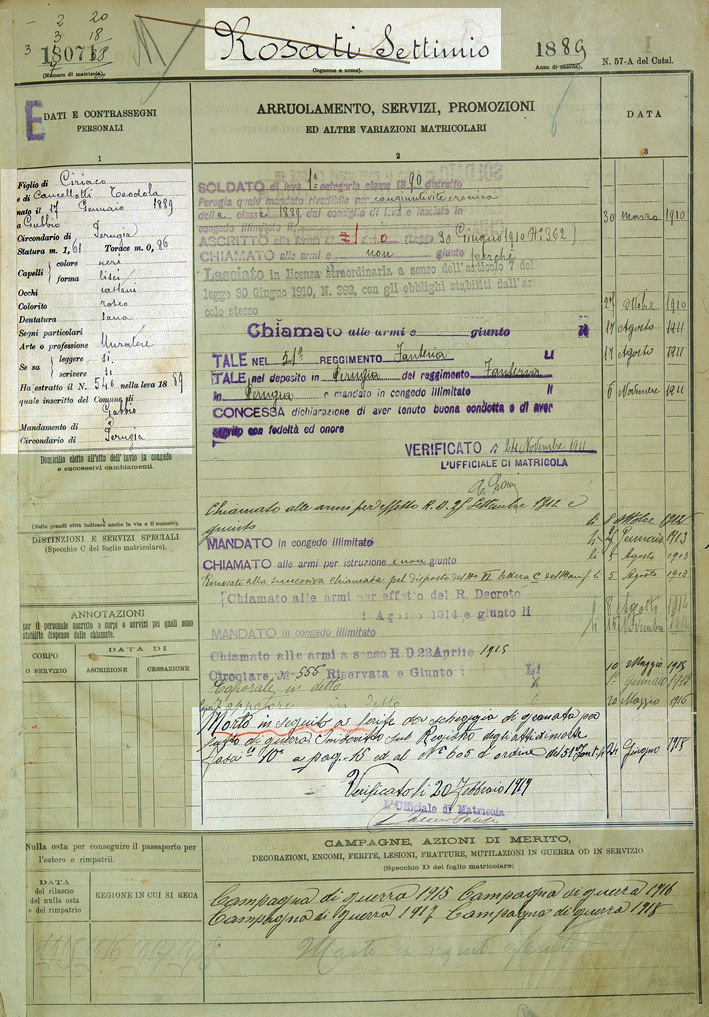 2 20
3 18
3
18071
(Numero di matricola).
Rosati Settimio
Cognome e nome).
1889
(Anno di nascita).
N. 57-A del Catal.
E
DATI E CONTRASSEGNI
PERSONALI
1
Figlio di Ciriaco
e di Cancellotti Teodola
nato il 17 Gennaio 1889
a Gubbio
Circondario di Perugia
Statura m. 1,61 Torace m. 0,86
Capelli colore neri
forma lisci
Occhi castani
Colorito roseo
Dentatura sana
Segni particolari
Arte o professione Muratore
Se sa leggere si
scrivere si
Ha estratto il N. 540 nella leva 1889
quale inscritto del Comune di
Gubbio
Mandamento di
Circondario di Perugia
Domicilio eletto all'atto dell'invio in congedo
e successivi cambiamenti.
(Nelle grandi città indicare anche la via e il numero).
DISTINZIONI E SERVIZI SPECIALI
(Specchio C del foglio matricolare).
ANNOTAZIONI
per il personale ascritto a corpi o servizi pei quali sono
stabilite dispense dalle chiamate.
CORPO
O SERVIZIO
DATA DI
ASCRIZIONE
CESSAZIONE
ARRUOLAMENTO, SERVIZI, PROMOZIONI
ED ALTRE VARIAZIONI MATRICOLARI
2
DATA
3
SOLDATO di leva 1ª categoria classe 1890 distretto
Perugia quale mandato rivedibile per congiuntivite cronica
della classe 1889 dal consiglio di leva e lasciato in
congedo illimitato li 30 Marzo 1910
ASCRITTO alla ferma di (Legge 30 Giugno 1910 N° 362)
CHIAMATO alle armi e non giunto perchè
Lasciato in licenza straordinaria a senso dell'articolo 7 del
legge 30 Giugno 1910, N. 362, con gli obblighi stabiliti dall'ar
colo stesso 27 Ottobre 1910
Chiamato alle armi e giunto 17 Agosto 1911
TALE NEL 51° REGGIMENTO Fanteria LI 17 Agosto 1911
TALE nel deposito in Perugia del reggimento Fanteria
in Perugia e mandato in congedo illimitato 6 Novembre 1911
CONCESSA dichiarazione di aver tenuto buona condotta e di aver
servito con fedeltà ed onore
VERIFICATO li 24 Novembre 1911
L'UFFICIALE DI MATRICOLA
Chiamato alle armi per effetto R.D. 25 Settembre 1912 e
giunto li 8 Ottobre 1912
MANDATO in congedo illimitato li Gennaio 1913
CHIAMATO alle armi per istruzione e non giunto li 5 Agosto 1913
Rinviato alla successiva chiamata pel disposto del N° VI lettera C del Manif. li 5 Agosto 1913
Chiamato alle armi per effetto del R. Decreto
Agosto 1914 e giunto li 8 Agosto 1914
MANDATO in congedo illimitato li Novembre 1914
Chiamato alle armi a senso R.D. 22 Aprile 1915
Circolare N° 555 Riservata e Giunto Li 10 Maggio 1915
Caporale in detto 1° Gennaio 1916
Zappatore in detto Maggio 1916
Morto in seguito a ferite da scheggia di granata per
fatto di guerra Inscritto sul Registro degli atti di morte
a pag. 15 ed al N° 605 d'ordine del 51° Fant. li 24 Giugno 1918
Verificato li 20 Febbraio 1919
L'Ufficiale di Matricola
Nulla osta per conseguire il passaporto per
l'estero e rimpatrii.
DATA
del rilascio
del nulla osta
e del rimpatrio
REGIONE IN CUI SI RECA
CAMPAGNE, AZIONI DI MERITO,
DECORAZIONI, ENCOMI, FERITE, LESIONI, FRATTURE, MUTILAZIONI IN GUERRA OD IN SERVIZIO
(Specchio D del foglio matricolare)
Campagna di guerra 1915 Campagna di guerra 1916
Campagna di Guerra 1917 Campagna di guerra 1918
1915 1916 1917
Morto in